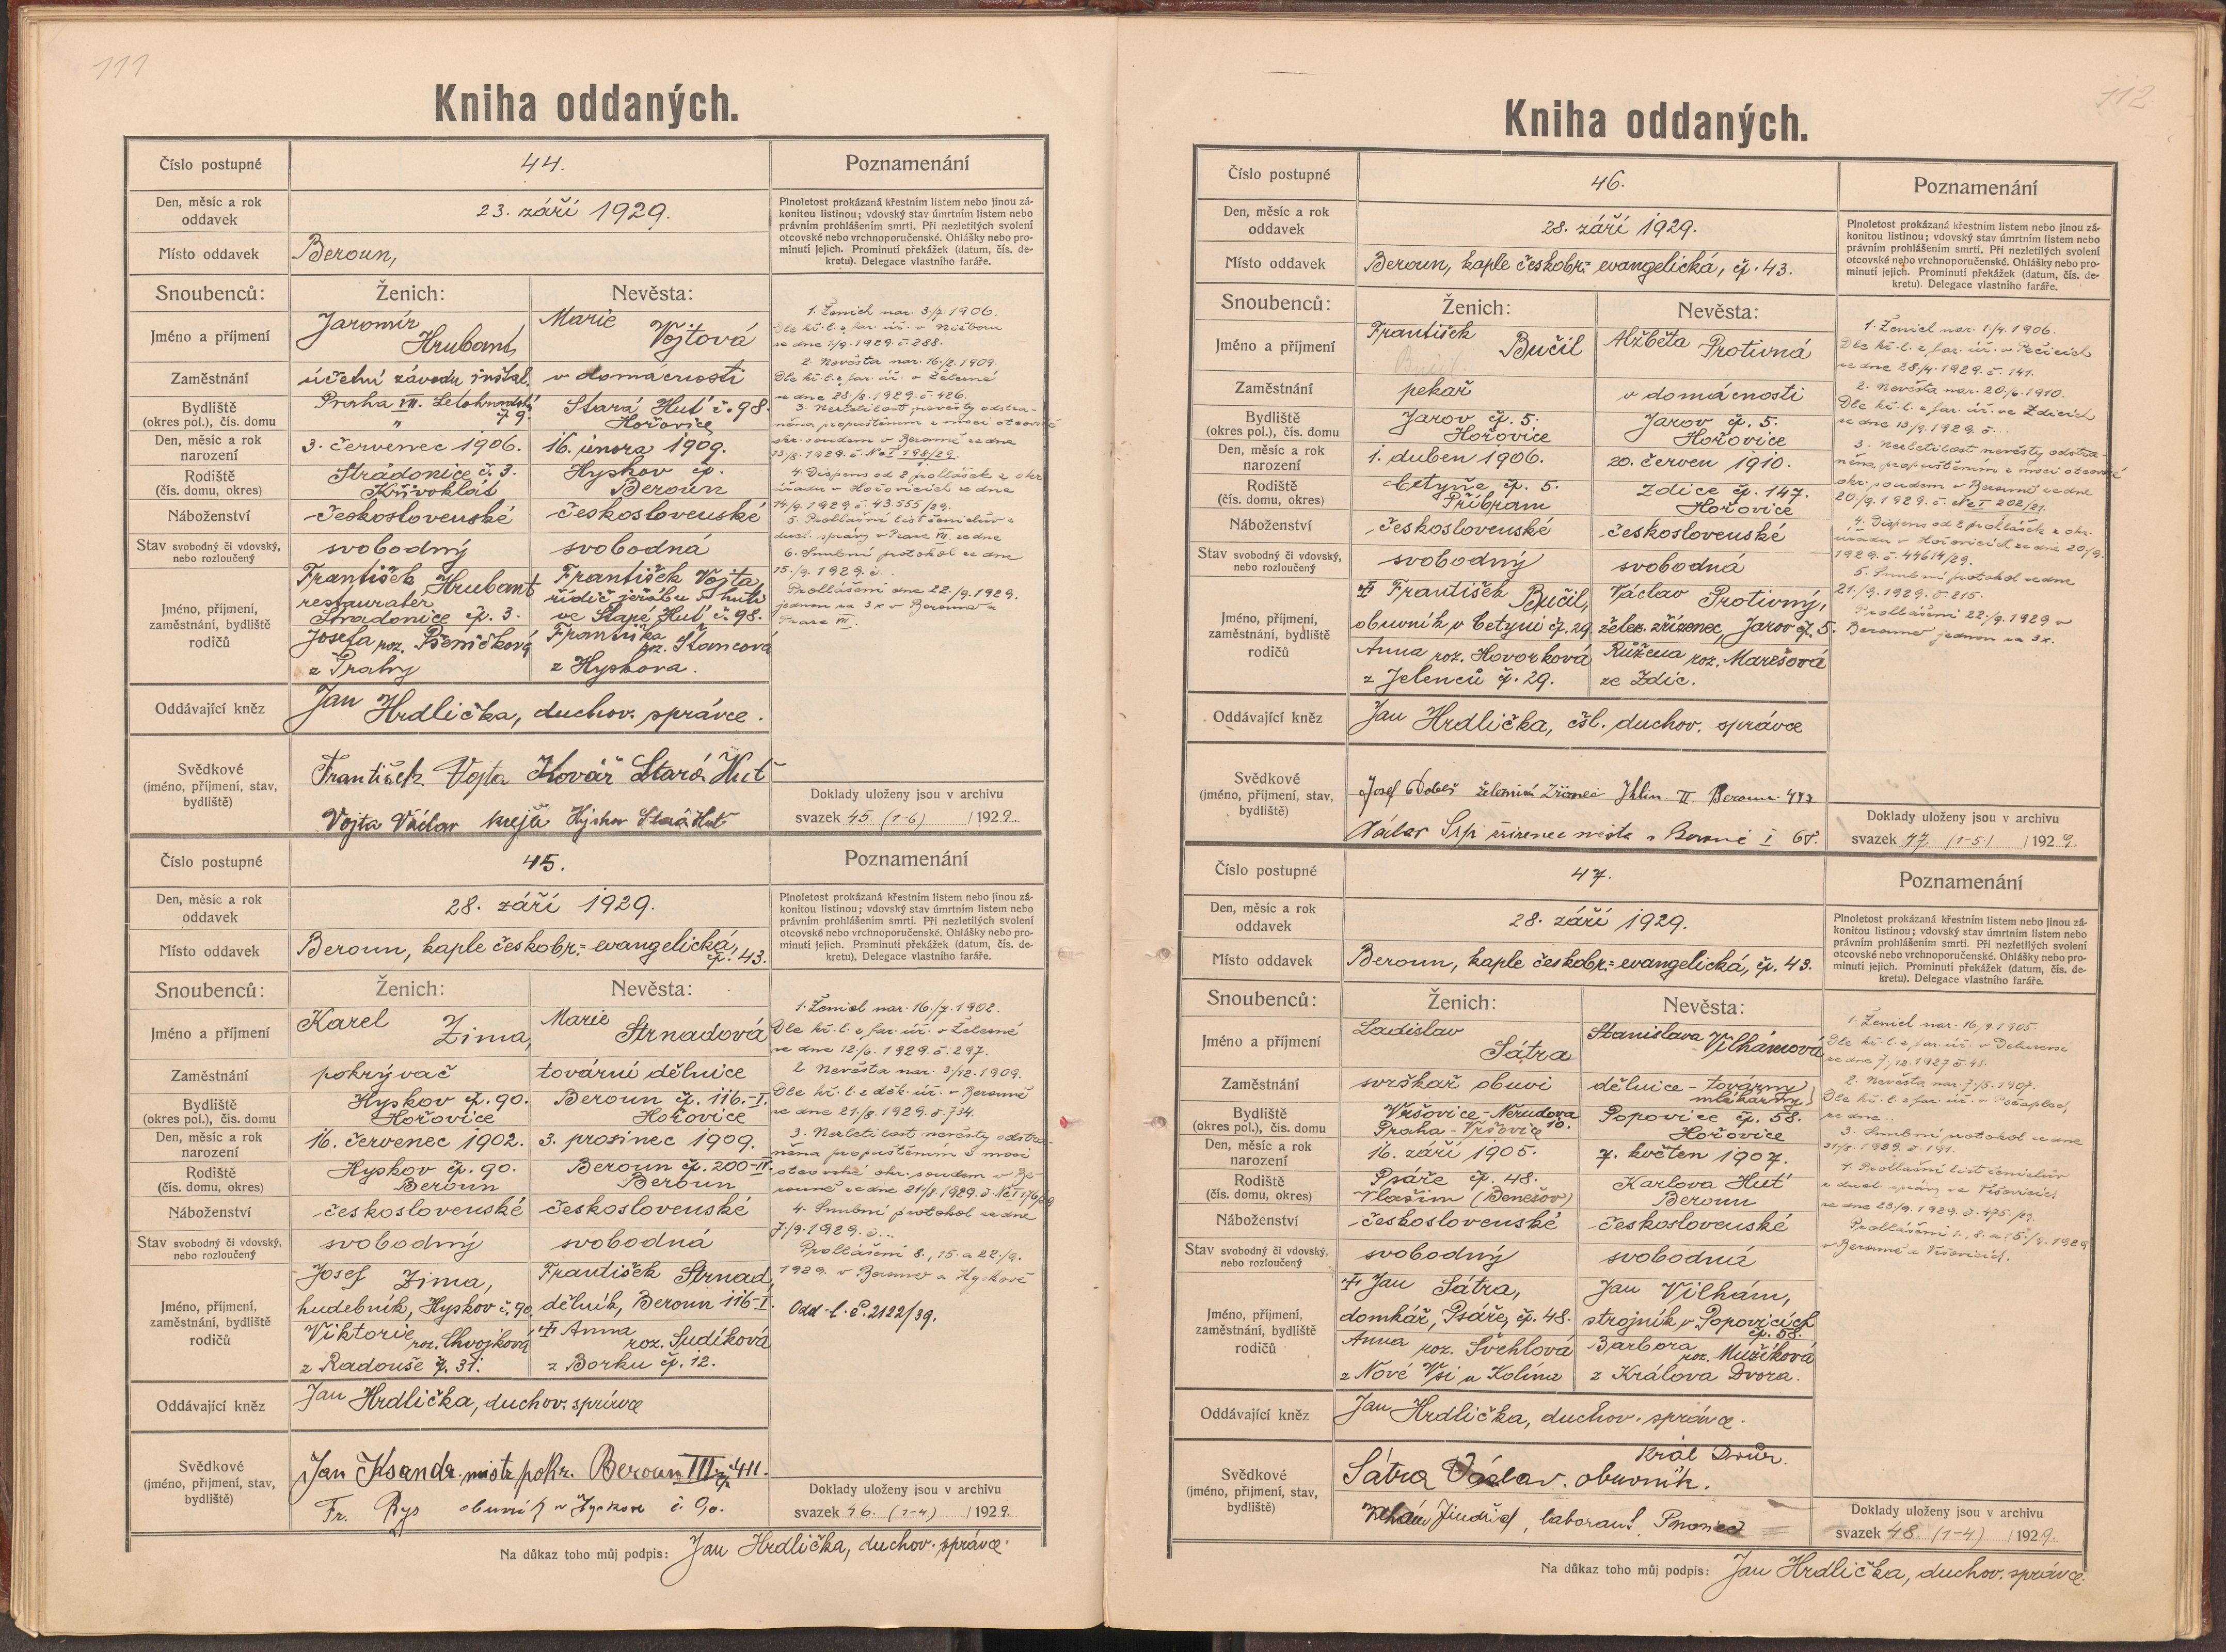 111
Kniha oddaných.
Číslo postupné
44.
Poznamenání
Den, měsíc a rok
oddavek
23. září 1929.
Plnoletost prokázaná křestním listem nebo jinou zá-
konitou listinou; vdovský stav úmrtním listem nebo
právním prohlášením smrti. Při nezletilých svolení
otcovské nebo vrchnoporučenské. Ohlášky nebo pro-
minutí jejich. Prominutí překážek (datum, čís. de-
kretu). Delegace vlastního faráře.
Místo oddavek
Beroun,
Snoubenců:
Ženich:
Nevěsta:
Jméno a příjmení
Jaromír
Hrubant
Marie
Vojtová
Zaměstnání
účetní závodu instal.
v domácnosti
Bydliště
(okres pol.), čís. domu
Praha VII. Letohradská
č. 9.
Stará Huť č. 98.
Hořovice
Den, měsíc a rok
narození
3. červenec 1906.
16. února 1909.
Rodiště
(čís. domu, okres)
Stradonice č. 3.
Křivoklát
Hyskov čp.
Beroun
Náboženství
československé
československé
Stav svobodný či vdovský,
nebo rozloučený
svobodný
svobodná
Jméno, příjmení,
zaměstnání, bydliště
rodičů
František Hrubant
restauratér
Stradonice čp. 3.
Josefa roz. Pšeničková
z Prahy
František Vojta,
řídič jeřábu v huti
ve Staré Huť č. 98.
Františka
roz. Štancová
z Hyskova.
1. Ženich nar. 3/7. 1906.
Dle kř. l. z far. úř. v Nižboru
ze dne 2/9. 1929. č. 288.
2. Nevěsta nar. 16./2. 1909.
Dle kř. l. z far. úř. v Železné
ze dne 28./8. 1929. č. 426.
3. Nezletilost nevěsty odstra-
něna propuštěním z moci otcovské
okr. soudem v Berouně ze dne
13/8. 1929. č. Nc I 198/29.
4. Dispens od 2 prohlášek z okr.
úřadu v Hořovicích ze dne
14/9. 1929 č. 43.555/29.
5. Prohlášní list ženichův z
duch. správy v Praze VII. ze dne
6. Snubní protokol ze dne
15./9. 1929. č..
Prohlášeni dne 22./9. 1929.
jednou za 3 x v Berouně a
Praze VII.
Oddávající kněz
Jan Hrdlička, duchov. správce.
Svědkové
(jméno, příjmení, stav,
bydliště)
František Vojta Kovář Stará Huť
Vojta Václav krejčí Hyskov Stará Huť
Doklady uloženy jsou v archivu
svazek 45. (1-6) /1929.
Číslo postupné
45.
Poznamenání
Den, měsíc a rok
oddavek
28. září 1929.
Plnoletost prokázaná křestním listem nebo jinou zá-
konitou listinou; vdovský stav úmrtním listem nebo
právním prohlášením smrti. Při nezletilých svolení
otcovské nebo vrchnoporučenské. Ohlášky nebo pro-
minutí jejich. Prominutí překážek (datum, čís. de-
kretu). Delegace vlastního faráře.
Místo oddavek
Beroun, kaple českobr.=evangelická,
čp. 43.
Snoubenců:
Ženich:
Nevěsta:
Jméno a příjmení
Karel
Zima,
Marie
Strnadová
Zaměstnání
pokrývač
tovární dělnice
Bydliště
(okres pol.), čís. domu
Hyskov čp. 90.
Hořovice
Beroun čp. 116.-I.
Hořovice
Den, měsíc a rok
narození
16. červenec 1902.
3. prosinec 1909.
Rodiště
(čís. domu, okres)
Hyskov čp. 90.
Beroun
Beroun čp. 200-II.
Beroun
Náboženství
československé
československé
Stav svobodný či vdovský,
nebo rozloučený
svobodný
svobodná
Jméno, příjmení,
zaměstnání, bydliště
rodičů
Josef Zima,
hudebník, Hyskov č. 90.
Viktorie
roz. Chvojková
z Radouše čp. 31.
František Strnad,
dělník, Beroun 116-I.
‡ Anna
roz. Sudíková
z Borku čp. 12.
1. Ženich nar. 16./7. 1902.
Dle kř. l. z far. úř. v Železné
ze dne 12./6. 1929. č. 297.
2. Nevěsta nar. 3/12. 1909.
Dle kř. l. z děk. úř. v Berouně
ze dne 21/8. 1929. č. 734.
3. Nezletilost nevěsty odstra-
něna propuštěním z moci
otcovské okr. soudem v Be-
rouně ze dne 21/8. 1929. č.
4. Snubní protokol ze dne
7./9. 1929. č...
Prohlášeni 8., 15. a 22./9.
1929. v Berouně a Hyskově
Odd. l. č. 2122/39.
Oddávající kněz
Jan Hrdlička, duchov. správce
Svědkové
(jméno, příjmení, stav,
bydliště)
Jan Ksandr. mistr pokr. Beroun III čp 411.
Fr. Rys obuvník v Hyskově č. 90.
Doklady uloženy jsou v archivu
svazek 46. (1-4) /1929.
Na důkaz toho můj podpis: Jan Hrdlička, duchov. správce.
112
Kniha oddaných.
Číslo postupné
46.
Poznamenání
Den, měsíc a rok
oddavek
28. září 1929.
Plnoletost prokázaná křestním listem nebo jinou zá-
konitou listinou; vdovský stav úmrtním listem nebo
právním prohlášením smrti. Při nezletilých svolení
otcovské nebo vrchnoporučenské. Ohlášky nebo pro-
minutí jejich. Prominutí překážek (datum, čís. de-
kretu). Delegace vlastního faráře.
Místo oddavek
Beroun, kaple českobr.=evangelická, čp. 43.
Snoubenců:
Ženich:
Nevěsta:
Jméno a příjmení
František
Bučil
Bučil
Alžběta Protivná
Zaměstnání
pekař
v domácnosti
Bydliště
(okres pol.), čís. domu
Jarov čp. 5.
Hořovice
Jarov čp. 5.
Hořovice
Den, měsíc a rok
narození
1. duben 1906.
20. červen 1910.
Rodiště
(čís. domu, okres)
Cetyně čp. 5.
Příbram
Zdice čp. 147.
Hořovice
Náboženství
československé
československé
Stav svobodný či vdovský,
nebo rozloučený
svobodný
svobodná
Jméno, příjmení,
zaměstnání, bydliště
rodičů
‡ František Bučil,
obuvník v Cetyni čp. 29.
Anna roz. Hovorková
z Jelenců čp. 29.
Václav Protivný,
želez. zřízenec, Jarov čp. 5.
Růžena roz. Marešová
ze Zdic.
1. Ženich nar. 1./4. 1906.
Dle kř. l. z far. úř. v Pečicích
ze dne 28/4. 1929. č. 141.
2. Nevěsta nar. 20/6. 1910.
Dle kř. l. z far. úř. ve Zdicích
ze dne 13/9. 1929. č...
3. Nezletilost nevěsty odstra-
něna propuštěním z moci otcovské
okr. soudem v Berouně ze dne
20/9. 1929. č. Nc I 202/21.
4. Dispens od 2 prohlášek z okr.
úřadu v Hořovicích ze dne 20/9.
1929. č. 44614/29.
5. Snubní protokol ze dne
21./9. 1929. č. 215.
Prohlášeni 22./9. 1929 v
Berouně jednou za 3x.
Oddávající kněz
Jan Hrdlička, čsl. duchov. správce
Svědkové
(jméno, příjmení, stav,
bydliště)
Josef Dobeš železniční zřízenec Beroun 477.
Václav Srp zřízenec města v Berouně I 68.
Doklady uloženy jsou v archivu
svazek 47 (1-5) /1929.
Číslo postupné
47.
Poznamenání
Den, měsíc a rok
oddavek
28. září 1929.
Plnoletost prokázaná křestním listem nebo jinou zá-
konitou listinou; vdovský stav úmrtním listem nebo
právním prohlášením smrti. Při nezletilých svolení
otcovské nebo vrchnoporučenské. Ohlášky nebo pro-
minutí jejich. Prominutí překážek (datum, čís. de-
kretu). Delegace vlastního faráře.
Místo oddavek
Beroun, kaple českobr.=evangelická, čp. 43.
Snoubenců:
Ženich:
Nevěsta:
Jméno a příjmení
Ladislav
Šátra
Stanislava Vilhámová
Zaměstnání
svrškař obuvi
dělnice - továrny
mlékárny
Bydliště
(okres pol.), čís. domu
Vršovice - Nerudova
Praha - Vršovice 10.
Popovice čp. 58.
Hořovice
Den, měsíc a rok
narození
16. září 1905.
7. květen 1907.
Rodiště
(čís. domu, okres)
Psáře čp. 48.
Vlašim (Benešov)
Karlova Huť
Beroun
Náboženství
československé
československé
Stav svobodný či vdovský,
nebo rozloučený
svobodný
svobodná
Jméno, příjmení,
zaměstnání, bydliště
rodičů
‡ Jan Šátra,
domkář, Psáře, čp. 48.
Anna roz. Švehlová
z Nové Vsi u Kolína
Jan Vilhám,
strojník v Popovicích
čp. 58.
Barbora
roz. Mužíková
z Králova Dvora.
1. Ženich nar. 16/9. 1905.
Dle kř. l. z far. úř. v
ze dne 7./12. 1927 č. 48.
2. Nevěsta nar. 7./5. 1907.
Dle kř. l. z far. úř. v Počaplech
ze dne..
3. Snubní protokol ze dne
31/8. 1929. č. 191.
4. Prohlášní list ženichův
z duch. správy ve Vršovicích
ze dne 23/9. 1929. č. 475./29.
Prohlášeni 1., 8. a 15./9. 1929
v Berouně a Vršovicích.
Oddávající kněz
Jan Hrdlička, duchov. správce.
Svědkové
(jméno, příjmení, stav,
bydliště)
Král Dvůr.
Šátra Václav. obuvník.
Vilhám Jindřich, laborant,
Doklady uloženy jsou v archivu
svazek 48. (1-4) /1929.
Na důkaz toho můj podpis: Jan Hrdlička, duchov. správce.